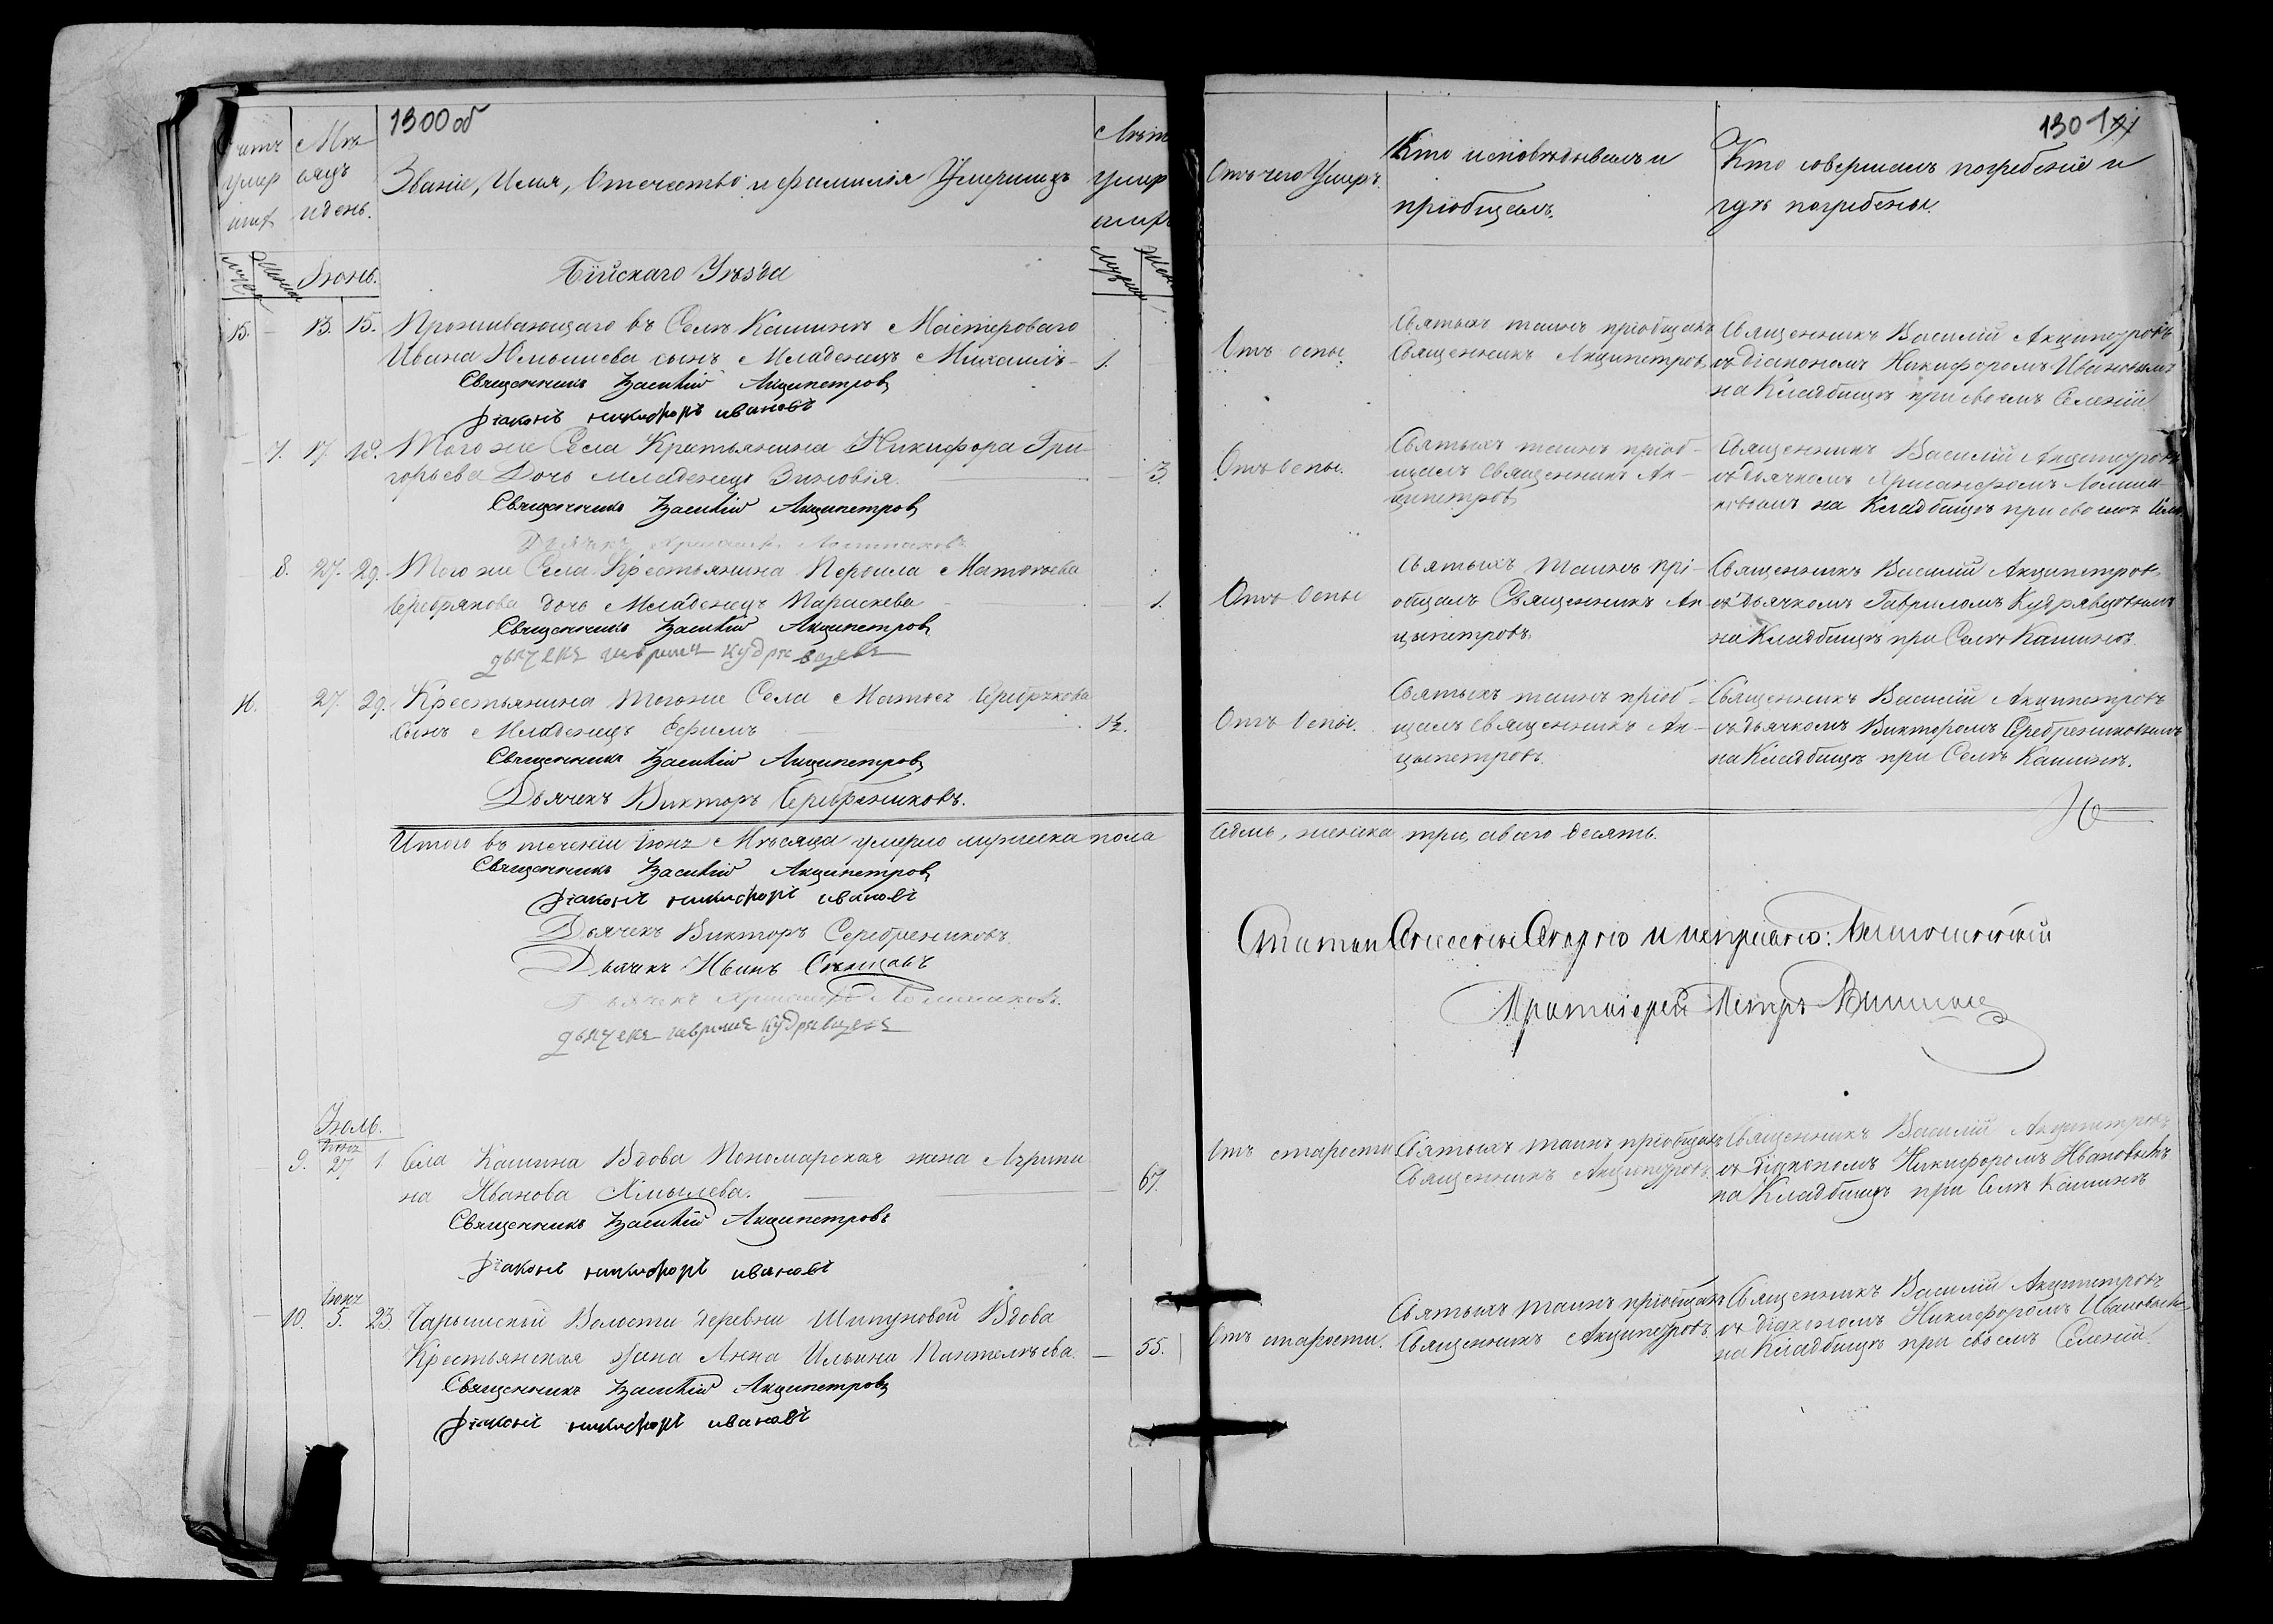 1300 об
Счетъ умершихъ
Мѣсяцъ и день.
Званіе, Имя, Отечество и фамилія Умершихъ
Лѣта умершихъ
Мужеска
Женска
Іюнь.
Бійскаго Уѣзда
15. — 13. 15. Проживающаго въ Селѣ Кашинѣ Мастероваго
Ивана Хмылева сынъ Младенецъ Михаилъ — 1.
Священникъ Василій Акципетровъ
Діаконъ Никифоръ Ивановъ
— 7. 17. 18. Того же Села Крестьянина Никифора Гри-
горьева Дочь младенецъ Зиновія. — 3.
Священникъ Василій Акципетровъ
Дьячекъ Ломшаковъ
8. 27. 29. Того же Села Крестьянина Матвѣева
Серебрякова дочь Младенецъ Параскева 1.
Священникъ Василій Акципетровъ
дьячекъ гаврилъ кудрявцевъ
16. 27. 29. Крестьянина того же Села Матвея Серебрякова
Сынъ Младенецъ Ефимъ 1½.
Священникъ Василій Акципетровъ
Дьячекъ Викторъ Серебрениковъ.
Итого въ теченіи Іюня Мѣсяца умерло мужеска пола
Священникъ Василій Акципетровъ
Діаконъ Никифоръ Ивановъ
Дьячекъ Викторъ Серебрениковъ.
Дьячекъ Иванъ
Дьячекъ Ломшаковъ.
дьячекъ гаврилъ кудрявцевъ
Іюль.
9. Іюня 27. 1. Села Кашина Вдова Пономарская жена Агрипи-
на Иванова Хмылева. — 67.
Священникъ Василій Акципетровъ
Діаконъ Никифоръ Ивановъ
— 10. Іюня 5. 23. Чарышской Волости деревни Шипуновой Вдова
Крестьянская жена Анна Ильина Пантелѣева. — 55.
Священникъ Василій Акципетровъ
Діаконъ Никифоръ Ивановъ
1301
Отъ чего Умеръ.
Кто исповѣдывалъ и
пріобщалъ.
Кто совершалъ погребеніе и
гдѣ погребены.
Отъ оспы.
Святыхъ таинъ пріобщалъ
Священникъ Акципетровъ
Священникъ Василій Акципетровъ
съ діакономъ Никифоромъ Ивановымъ
на Кладбищѣ при своемъ Селеніи
Отъ Оспы.
Святыхъ таинъ пріоб-
щалъ Священникъ Ак-
ципетровъ
Священникъ Василій Акципетровъ
съ дьячкомъ Ломша-
ковымъ на Кладбищѣ при своемъ
Отъ Оспы
Святыхъ таинъ прі-
общалъ Священникъ Ак
ципетровъ.
Священникъ Василій Акципетровъ
съ дьячкомъ Гавриломъ Кудрявцовымъ
на Кладбищѣ при Селѣ Кашинѣ.
Отъ Оспы.
Святыхъ таинъ пріоб-
щалъ священникъ Ак-
ципетровъ.
Священникъ Василій Акципетровъ
съ дьячкомъ Викторомъ Серебрениковымъ
на Кладбищѣ при Селѣ Кашинѣ.
седмь, женска три, а всего десять.
Протоіерей Петръ
Отъ старости
Святыхъ таинъ пріобщалъ
Священникъ Акципетровъ
Священникъ Василій Акципетровъ
съ діакономъ Никифоромъ Ивановымъ
на Кладбищѣ при Селѣ Кашинѣ
Отъ старости.
Святыхъ таинъ пріобщалъ
Священникъ Акципетровъ
Священникъ Василій Акципетровъ
съ діакономъ Никифоромъ Ивановымъ
на Кладбищѣ при своемъ Селеніи.